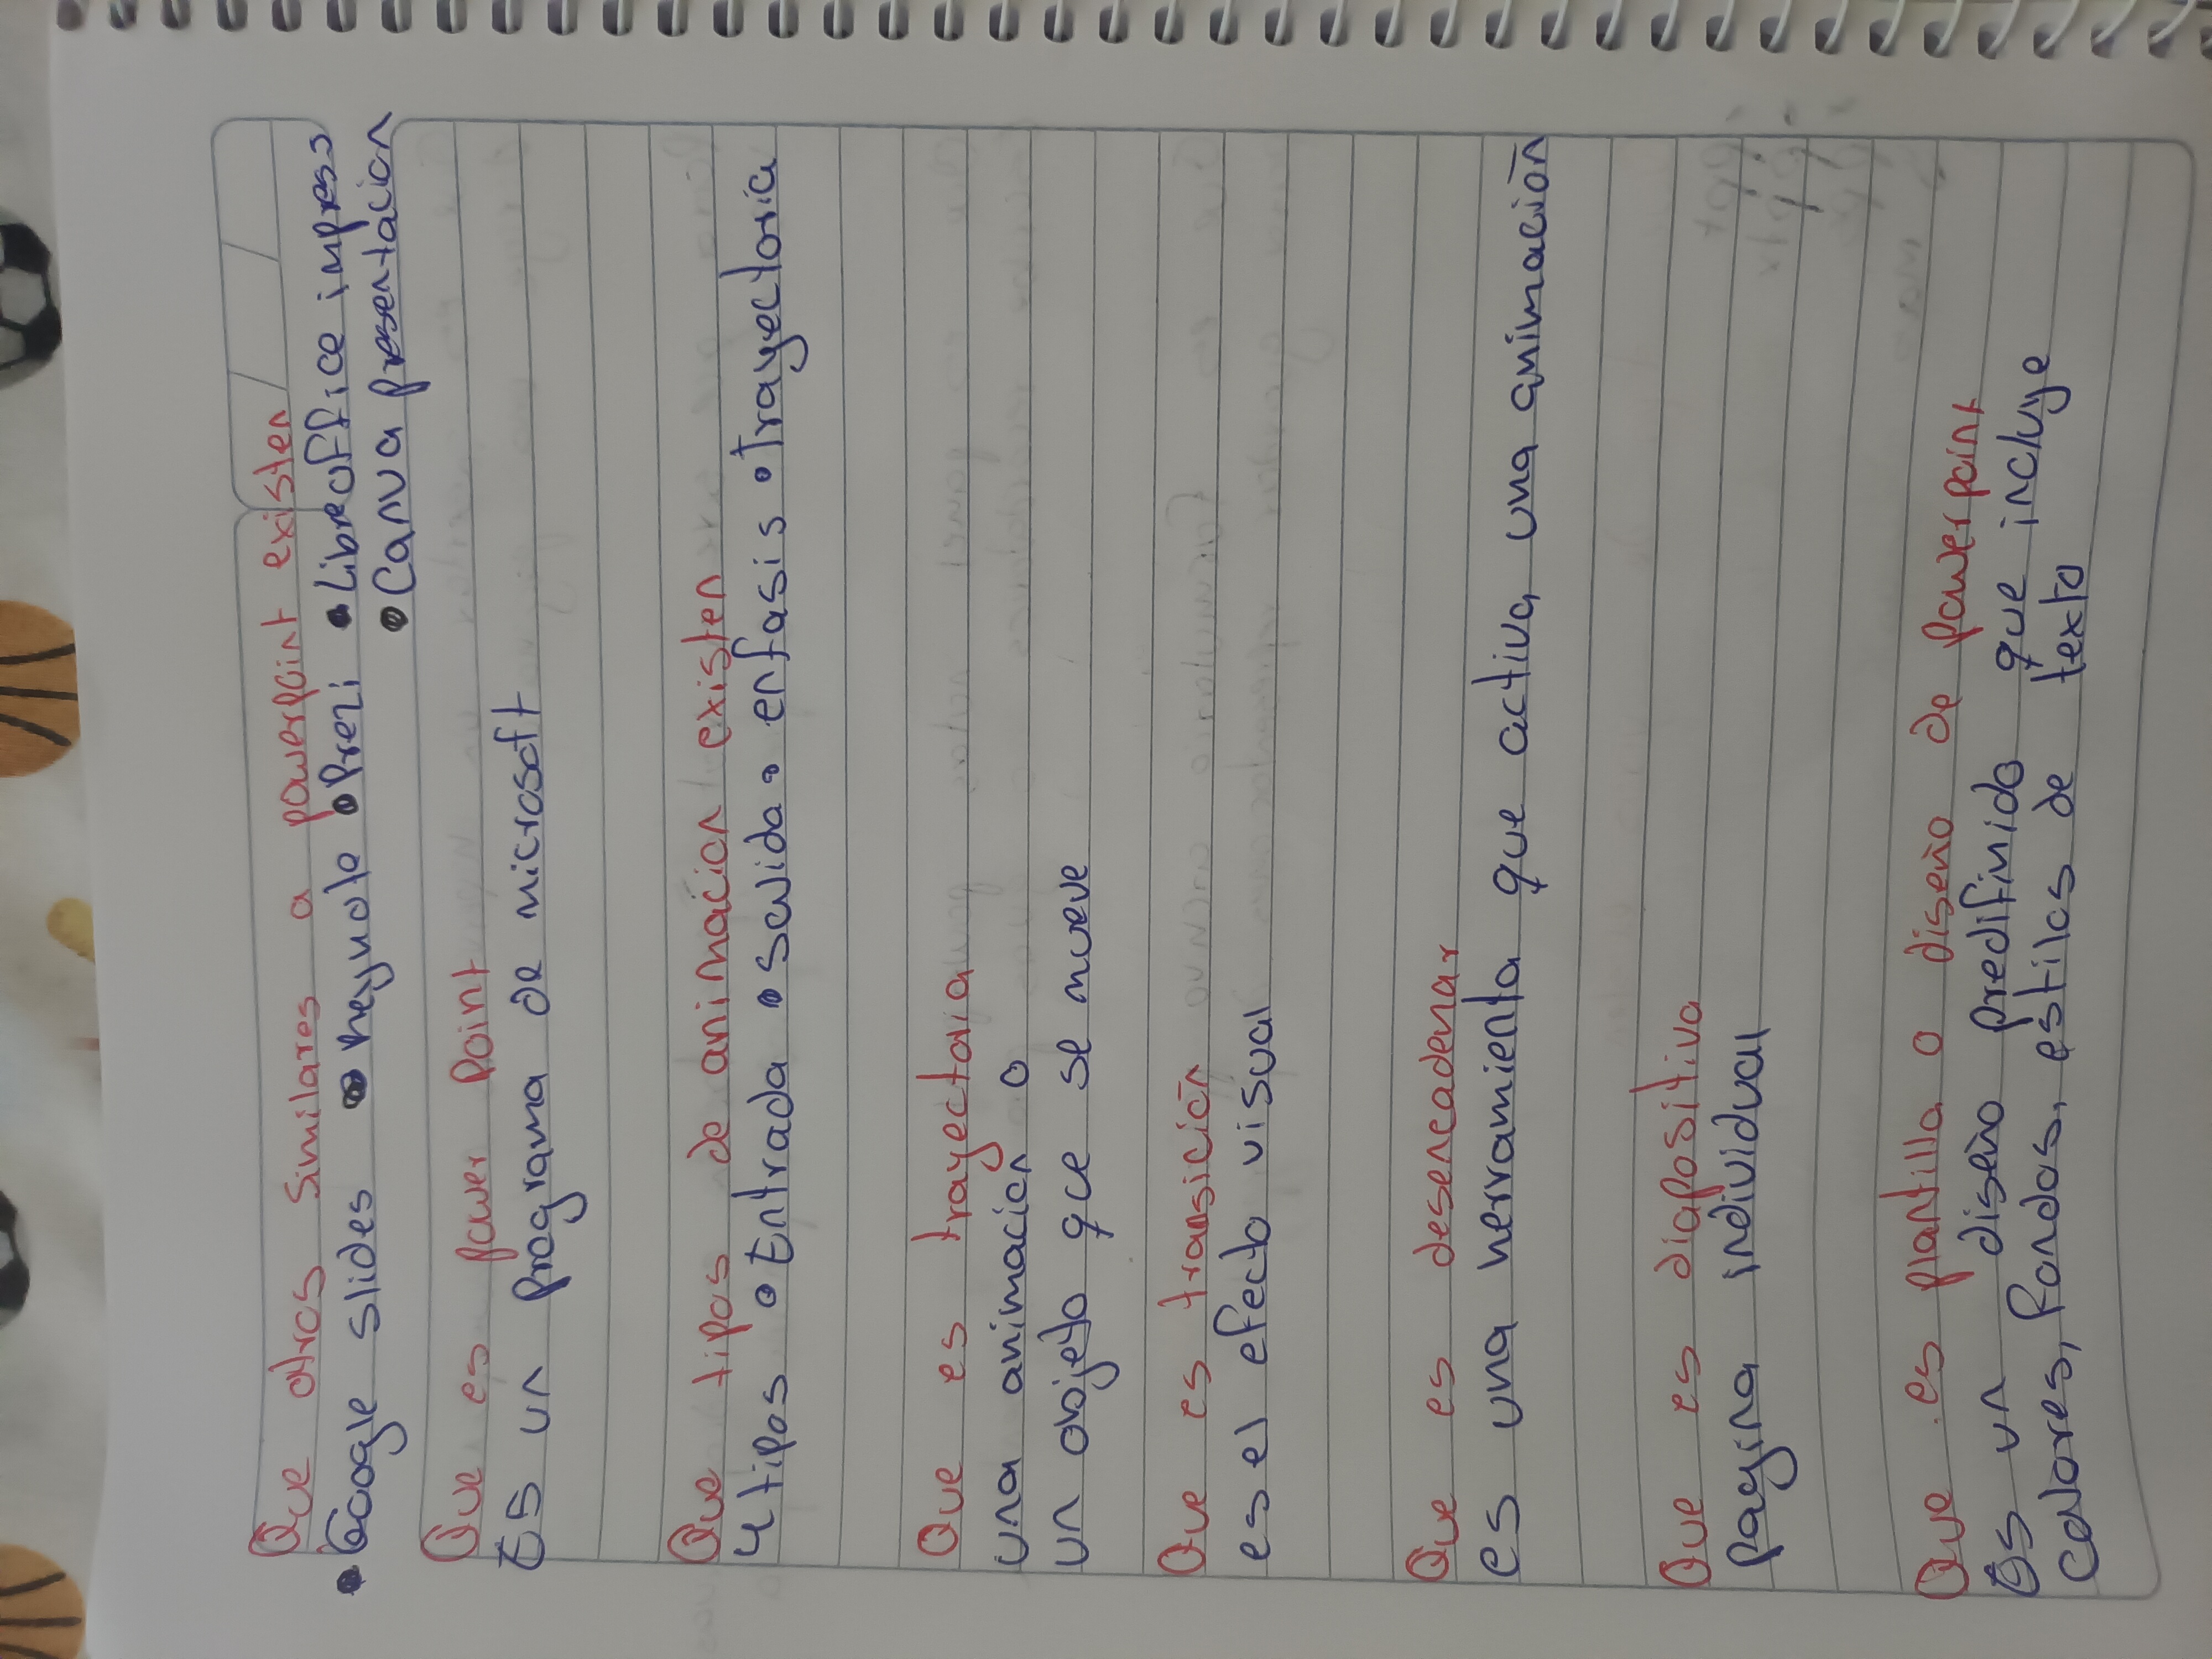 Que otros Similares a powerpoint existen
• Google slides • keynote • Prezi • Libreoffice impress
• Canva presentacion
Que es power Point
ES un programa de microsoft
Que tipos de animacion existen
4 tipos • Entrada • salida • enfasis • Trayectoria
Que es trayectoria
una animacion o
un objeto qce se mueve
Que es transición
es el efecto visual
Que es desencadenar
es una herramienta que activa una animación
Que es diapositiva
Pagina individual
Que es plantilla o diseño de powerpoint
Es un diseño predifinido que incluye
colores, Fondos, estilos de texto